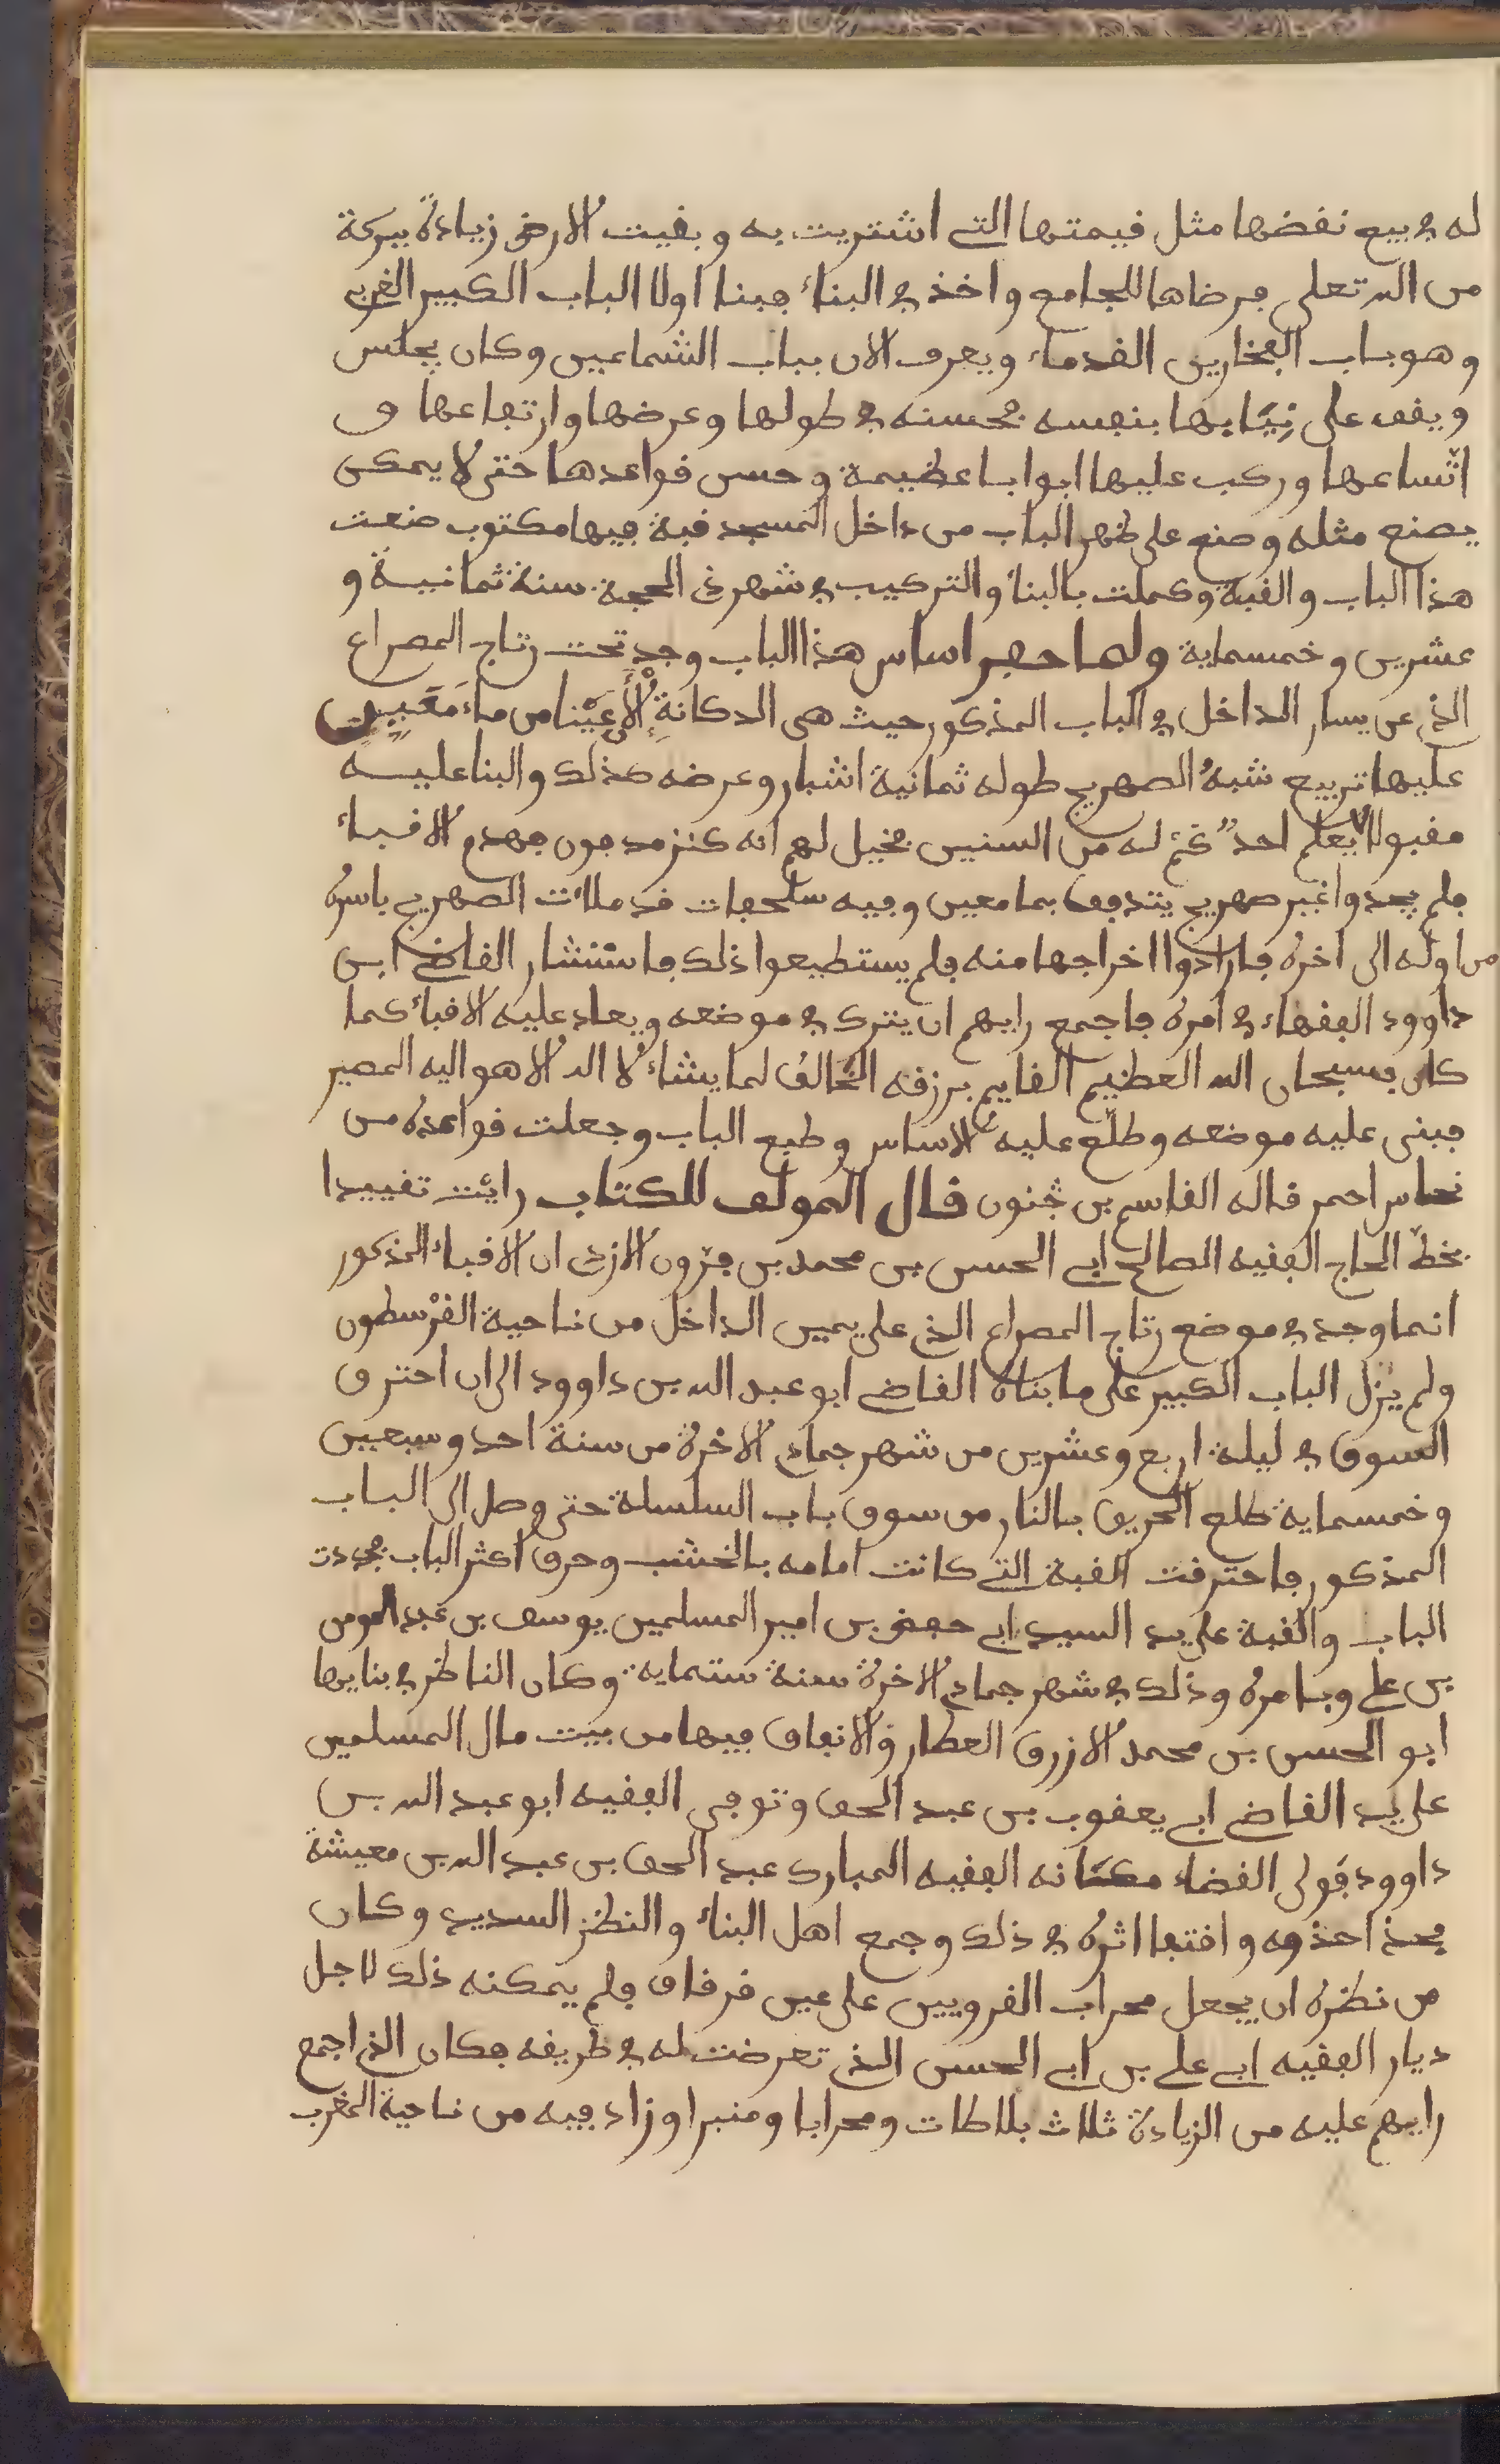 له في بيع نقضها مثل قيمتها التي اشتريت به وبقيت الارض زيادة ببركة
من الله تعلى فرضاها للجامع واخذ في البناء فبنا اولا الباب الكبير الغربي
وهو باب الفخارين القدماء ويعرف الان بباب الشماعين وكان يجلس
ويقف على بنايها بنفسه فحسنه في طولها وعرضها وارتفاعها و
اتساعها وركب عليها ابوابا عظيمة وحسن قواعدها حتى لا يمكن
يصنع مثله وصنع على ظهر الباب من داخل المسجد قبة فيها مكتوب صنعت
هذا الباب والقبة وكملت بالبناء والتركيب في شهر ذي الحجة سنة ثمانية و
عشرين وخمسماية ولما حفر اساس هذا الباب وجد تحت رتاج المصراع
الذي عن يسار الداخل في الباب المذكور حيث هي الدكانة الان عينا من ماء معين
عليها تربيع شبه الصهريج طوله ثمانية اشبار وعرضه كذلك والبنا عليه
مقبولا لا يعلم احد كم له من السنين فخيل لهم انه كنز مدفون فهدم الاقباء
فلم يجدوا غير صهريج يتدفق بما معين وفيه سلحفات قد ملات الصهريج باسره
من اوله الى اخره فارادوا اخراجها منه فلم يستطيعوا ذلك فاستشار القاضي ابن
داوود الفقهاء في امره فاجمع رايهم ان يترك في موضعه ويعاد عليه الاقباء كما
كان فسبحان الله العظيم القايم برزقه الخالق لما يشاء لا اله الا هو اليه المصير
فبنى عليه موضعه وطلع عليه الاساس وطبع الباب وجعلت قواعده من
نحاس احمر قاله القاسم بن جنون قال المولف للكتاب رايت تقييدا
بخط الحاج الفقيه الصالح ابي الحسن بن محمد بن فرون الازدي ان الاقباء المذكور
انما وجد في موضع رتاج المصراع الذي على يمين الداخل من ناحية القرسطون
ولم يزل الباب الكبير على ما بناه القاضي ابو عبد الله بن داوود الى ان احترق
السوق في ليلة اربع وعشرين من شهر جمادى الاخرة من سنة احد وسبعين
وخمسماية طلع الحريق بالنار من سوق باب السلسلة حتى وصل الى الباب
المذكور فاحترقت القبة التي كانت امامه بالخشب وحرق اكثر الباب فجددت
الباب والقبة على يد السيد ابي حفص بن امير المسلمين يوسف بن عبد المومن
بن علي وبامره وذلك في شهر جمادى الاخرة سنة ستماية وكان الناظر في بنايها
ابو الحسن بن محمد الازرق العطار والانفاق فيها من بيت مال المسلمين
على يد القاضي ابي يعقوب بن عبد الحق وتوفى الفقيه ابو عبد الله بن
داوود فولى القضاء مكانه الفقيه المبارك عبد الحق بن عبد الله بن معيشة
فحذا حذوه واقتفا اثره في ذلك وجمع اهل البناء والنظر السديد وكان
من نظره ان يجعل محراب القرويين على عين قرقاق فلم يمكنه ذلك لاجل
ديار الفقيه ابي علي بن ابي الحسن الذي تعرضت له في طريقه فكان الذي اجمع
رايهم عليه من الزيادة ثلاث بلاطات ومحرابا ومنبرا وزاد فيه من ناحية المغرب